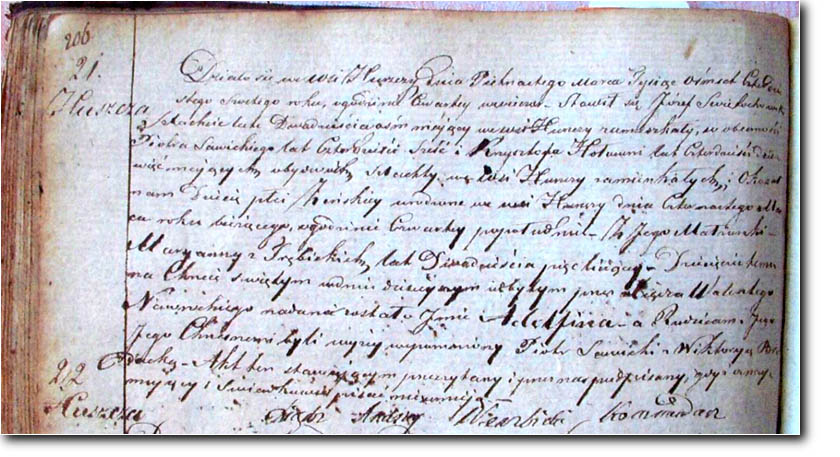 206
21.
Huszcza
Działo się we wsi Huszczy dnia Pietnastego Marca Tysiąc Osmset
stego Szostego roku, o godzinie Czwartey wieczor Stawił się Józef
Szlachcic lat Dwadzieścia ośm maiący we wsi Huszczy zamieszkały, w obecności
Piotra Sawickiego lat Czterdzieści Sześć i Krzysztofa Hołowni lat Czterdzieści dzie
więć maiących, obydwóch Szlachty we wsi Huszczy zamieszkałych, i Okazał
nam Dziecie płci Żeńskiey urodzone we wsi Huszczy dnia Czternastego Mar
ca roku bieżącego, o godzinie Czwartey popołudniu z Jego Małżonki
Maryanny z Trębickich, lat Dwadzieścia pięć maiący Dziecięciu temu
na Chrzcie świętym w dniu dzisieyszym odbytym przez Xiędza Walentego
nadane zostało Imie Adolfina a Rodzicami Jego
Jego Chrzesnemi byli wyżey wspomniony Piotr Sawicki i Wiktorya
Akt ten stawaiącym przeczytany i przez nas podpisany, gdyż
i Świadkowie pisać nieumieią
22
Huszcza
Xiądz Andrzey Wierzbicki Komendarz